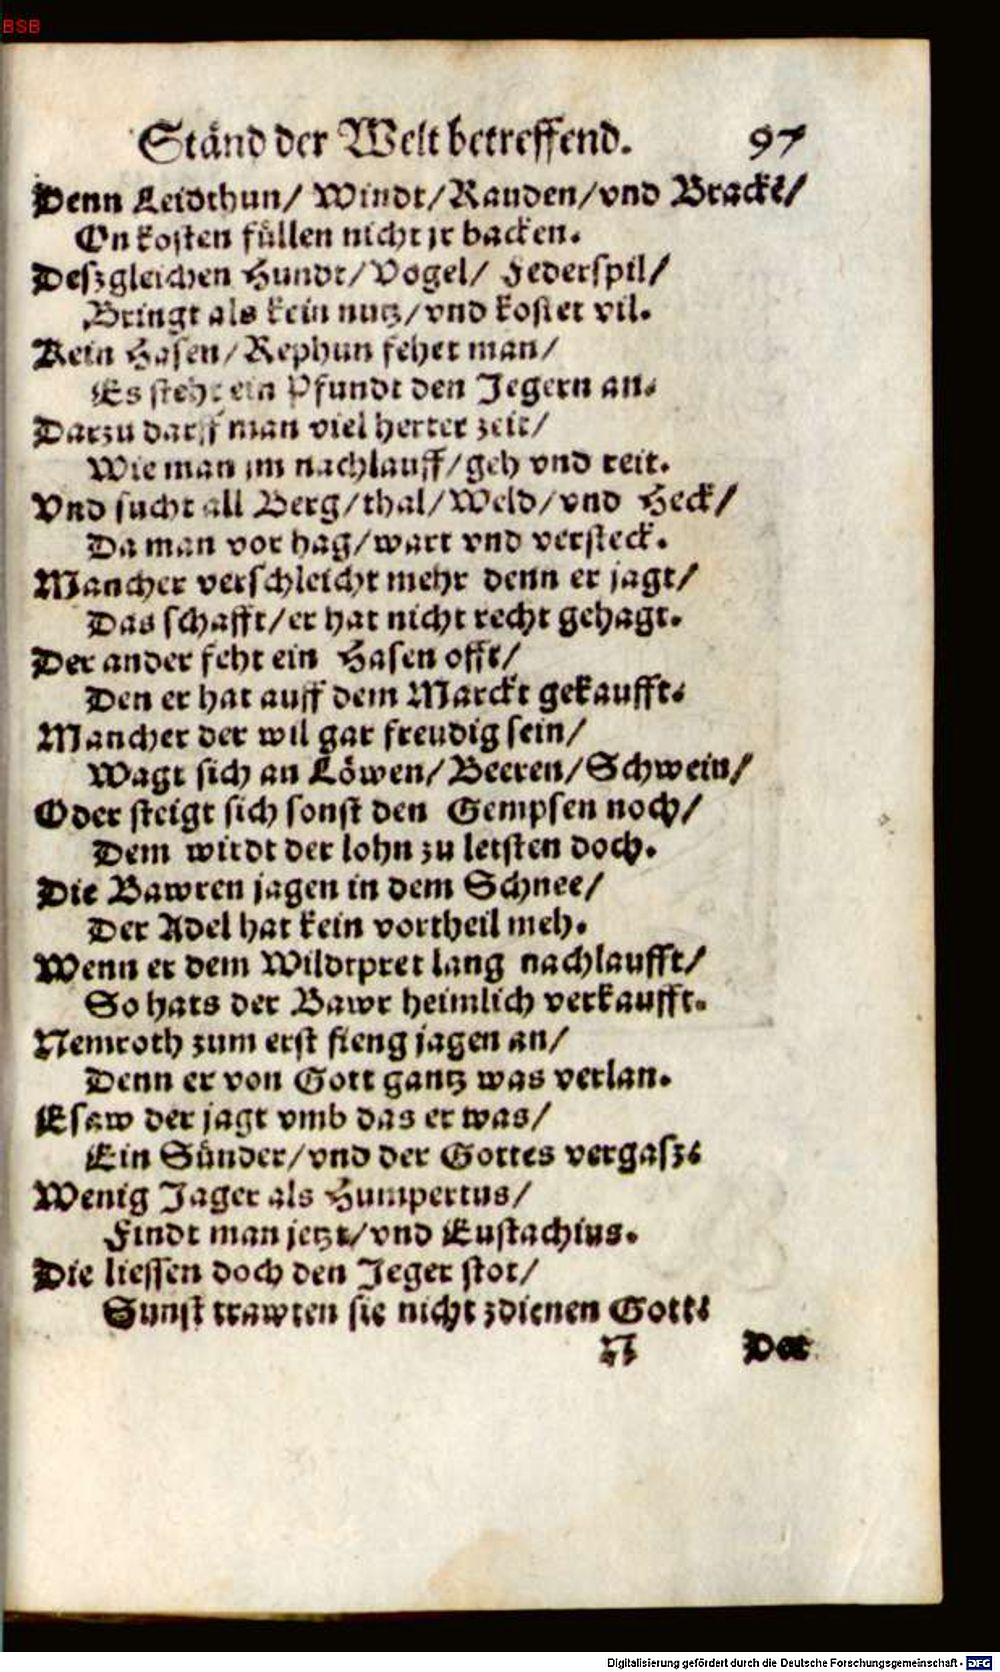 BSB
Ständ der Welt betreffend. 97
Denn Leidthun/ Windt/Rauden/vnd Brackē/
On kosten füllen nicht jr backen.
Deſzgleichen Hundt/Vogel/ Federſpil/
Bringt als kein nutz/vnd koſtet vil.
Kein Haſen/Rephun fehet man/
Es ſteht ein Pfundt den Jegern an.
Darzu darff man viel herter zeit/
Wie man im nachlauff/geh vnd reit.
Vnd ſucht all Berg/thal/Weld/vnd Heck/
Da man vor hag/wart vnd verſteck.
Mancher verſchleicht mehr denn er jagt/
Das ſchafft/er hat nicht recht gehagt.
Der ander feht ein Haſen offt/
Den er hat auff dem Marckt gekaufft.
Mancher der wil gar freudig ſein/
Wagt ſich an Löwen/Beeren/Schwein/
Oder ſteigt ſich ſonſt den Gempſen noch/
Dem wirdt der lohn zu letſten doch.
Die Bawren jagen in dem Schnee/
Der Adel hat kein vortheil meh.
Wenn er dem Wildtpret lang nachlaufft/
So hats der Bawr heimlich verkaufft.
Nemroth zum erſt fieng jagen an/
Denn er von Gott gantz was verlan.
Eſaw der jagt vmb das er was/
Ein Sünder/vnd der Gottes vergaſz.
Wenig Jager als Humpertus/
Findt man jetzt/vnd Euſtachius.
Die lieſſen doch den Jeger ſtot/
Sunſt trawten ſie nicht zdienen Gott.
N Der
Digitalisierung gefördert durch die Deutsche Forschungsgemeinschaft - DFG